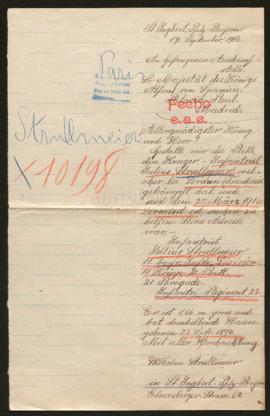 St Ingbert, Pfalz-Bayern
19. September 1916.
An Gefangenen Auskunft-
stelle
Sr. Majestät des Königs
Alfons von Spanien
Palacio Real
Madrid
Fecho
e.a.e.
Paris
Strullmeier
X10198
Allergnädigster König
und Herr!
Gestatte mir die Bitte
den Krieger - Infanterist
Julius Strullmeier wel-
cher bei Verdun
gekämpft hat und
seit dem 20. März 1916
vermisst ist, suchen zu
helfen. Seine Adresse
war:
Infanterist
Julius Strullmeier
11. bayr. Division
11. Komp. Batt.
21. Brigade
Infanterie Regiment 22.
Er ist 1,66 m gross und
hat dunkelblonde Haare,
geboren 23. Sept. 1894
Mit aller Hochachtung
Wilhelm Strullmeier
in St Ingbert, Pfalz-Bayern
Strasse